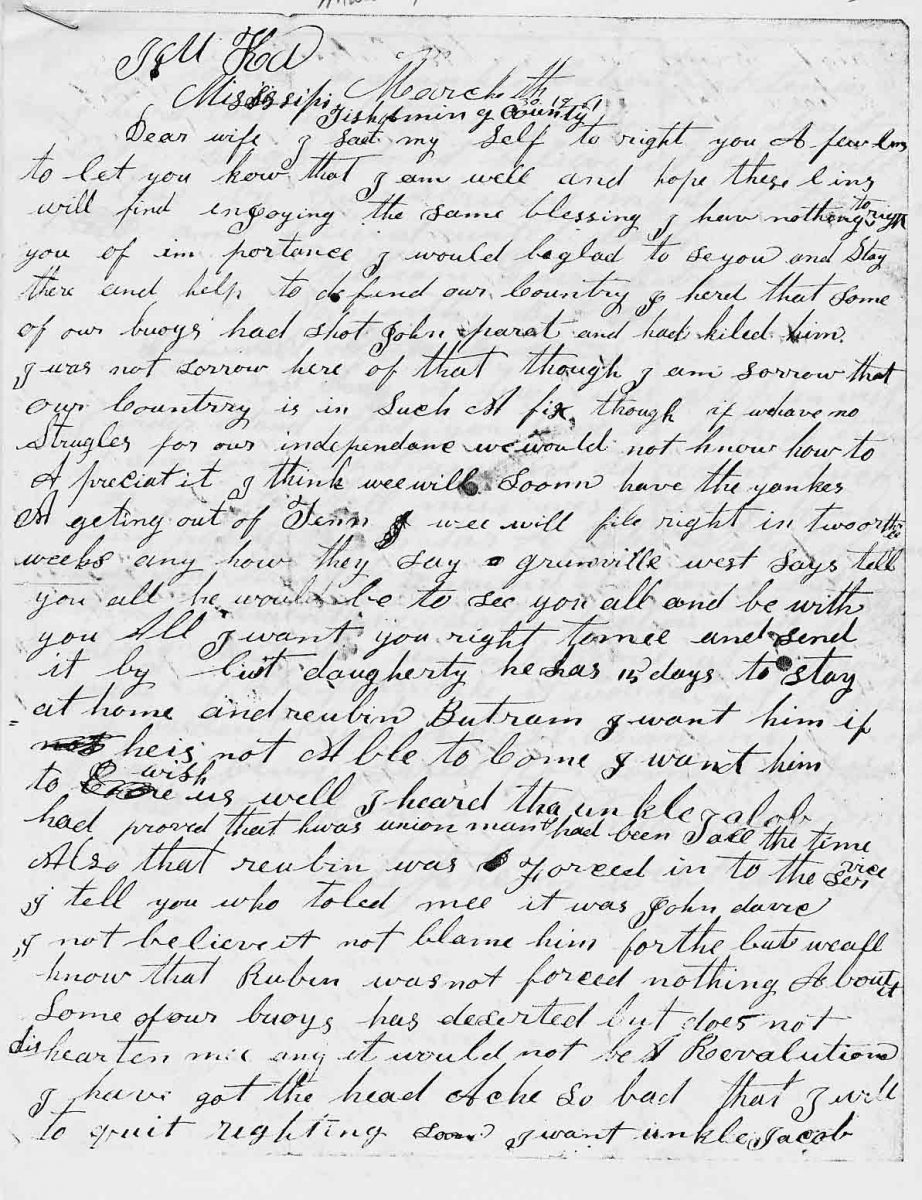 Mississipi March th
Tishoming County
Dear wife I seat my self to right you A few lins
to let you know that I am well and hope these lins
will find ingoying the same blessing I hav nothing to right
you of im portance I would be glad to se you and Stay
there and help to defind our Country I herd that some
of our buoys had shot John parat and had kiled him
I was not sorrow here of that though I am sorrow that
our Countrry is in Such A fix though if we have no
Strugles for our independane we would not know how to
A preciat it I think wee will Soonn have the yankes
A geting out of Tenn I wee will file right in two or three
weeks any how they say grunville west says tell
you all he would be to see you all and be with
you All I want you right to mee and send
it by daugherty he has 15 days to stay
at home and reubin Butram I want him if
he is not A ble to Come I want him
to wish us well I heard tha unkle
had proved that hwas union man had been Tall the time
Also that reubin was Forced in to the service
I tell you who toled mee it was John davie
I not believe it not blame him for the but we all
know that Rubin was not forced nothing A bout it
Some of our buoys has deserted but does not
dis hearten mee any it would not be A Revalution
I have got the head Ache So bad that I will
to quit righting soon I want unkle Jacob